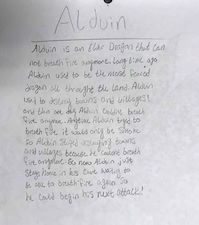 Alduin
Alduin is an Elder Dragon that can
not breath fire anymore. Long time ago
Alduin used to be the most feared
dragon all throught the land. Alduin
used to destroy towns and villages!
and then one day Alduin couldnt breath
fire anymore. Anytime Alduin tryed to
breath fire it would only be smoke.
So Alduin stoped destroying towns
and villages because he couldnt breath
fire anymore. So now Alduin just
stays home in his cave waiting to
be able to breath fire again so
he could begin his next attack!